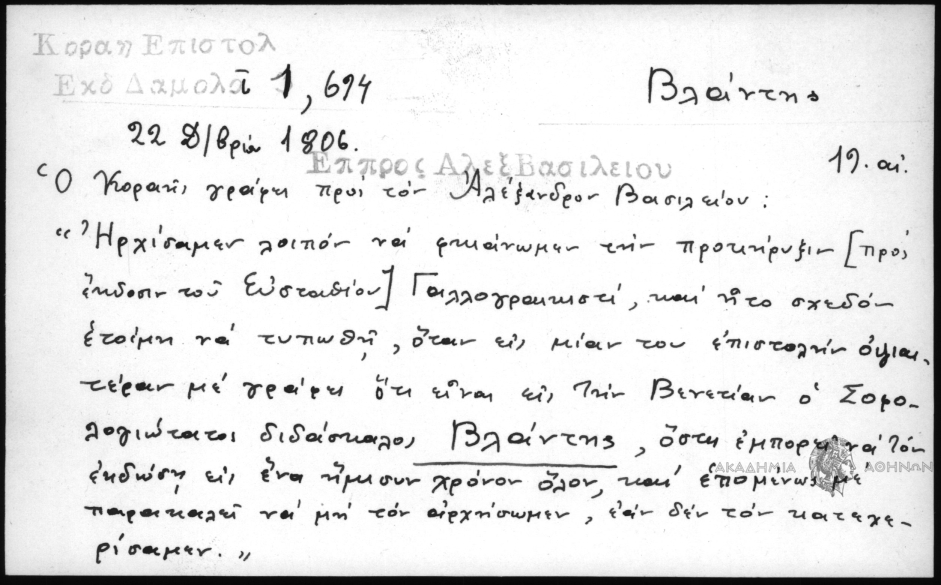 Κοραη Επιστολ
Εκδ Δαμολα τ 1, 694
Βλάντης
22 Δ/βρίου 1806.
Επ προς Αλεξ Βασιλειου
19. αἰ.
Ὁ Κοραῆς γράφει πρὸς τὸν Ἀλέξανδρον Βασιλείου:
"Ἠρχίσαμεν λοιπὸν νὰ φκιάνωμεν τὴν προκήρυξιν [πρὸς
ἔκδοσιν τοῦ Εὐσταθίου] Γαλλογραικιστί, καὶ ἦτο σχεδὸν
ἑτοίμη νὰ τυπωθῇ, ὅταν εἰς μίαν του ἐπιστολὴν ὀψιαι-
τέραν μὲ γράφει ὅτι εἶναι εἰς τὴν Βενετίαν ὁ Σοφο-
λογιώτατος διδάσκαλος Βλάντης, ὅστις ἐμπορεῖ νὰ τὸν
ἐκδώσῃ εἰς ἕνα ἥμισυν χρόνον ὅλον, καὶ ἑπομένως με
παρακαλεῖ νὰ μὴ τὸν ἀρχήσωμεν, ἐὰν δὲν τὸν κατεχε-
ρίσαμεν."
ΑΚΑΔΗΜΙΑ ΑΘΗΝΩΝ